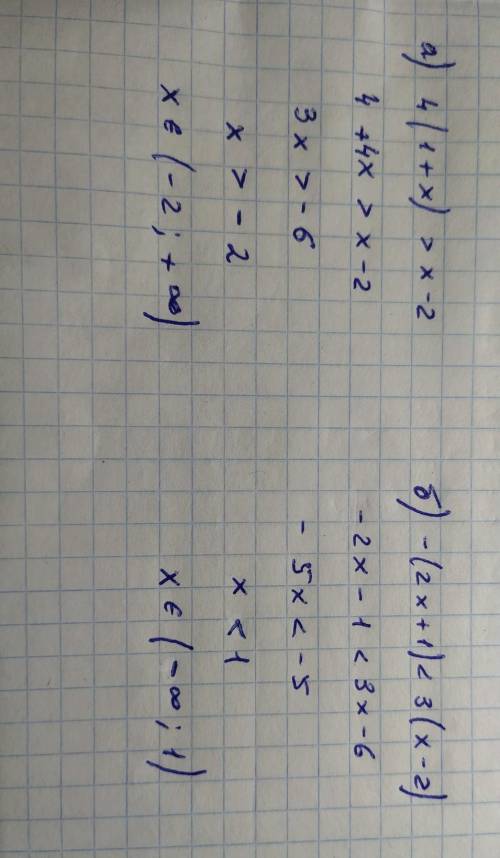 а) 4(1+x) > x-2
4+4x > x-2
3x > -6
x > -2
x ∈ (-2; +∞)
б) -(2x+1) < 3(x-2)
-2x-1 < 3x-6
-5x < -5
x < 1
x ∈ (-∞; 1)